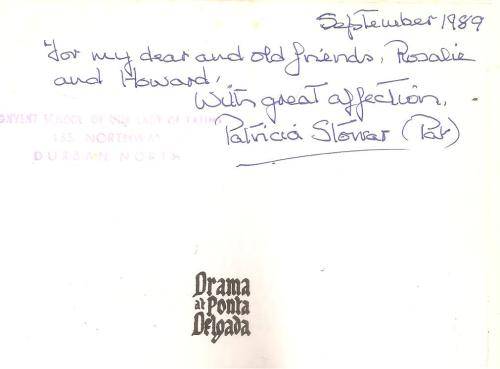 September 1989
For my dear and old friends, Rosalie
and Howard,
With great affection,
Patricia Stowar (Pat)
CONVENT SCHOOL OF OUR LADY OF FATIMA
155 NORTHWAY
DURBAN NORTH
Drama
at Ponta
Delgada